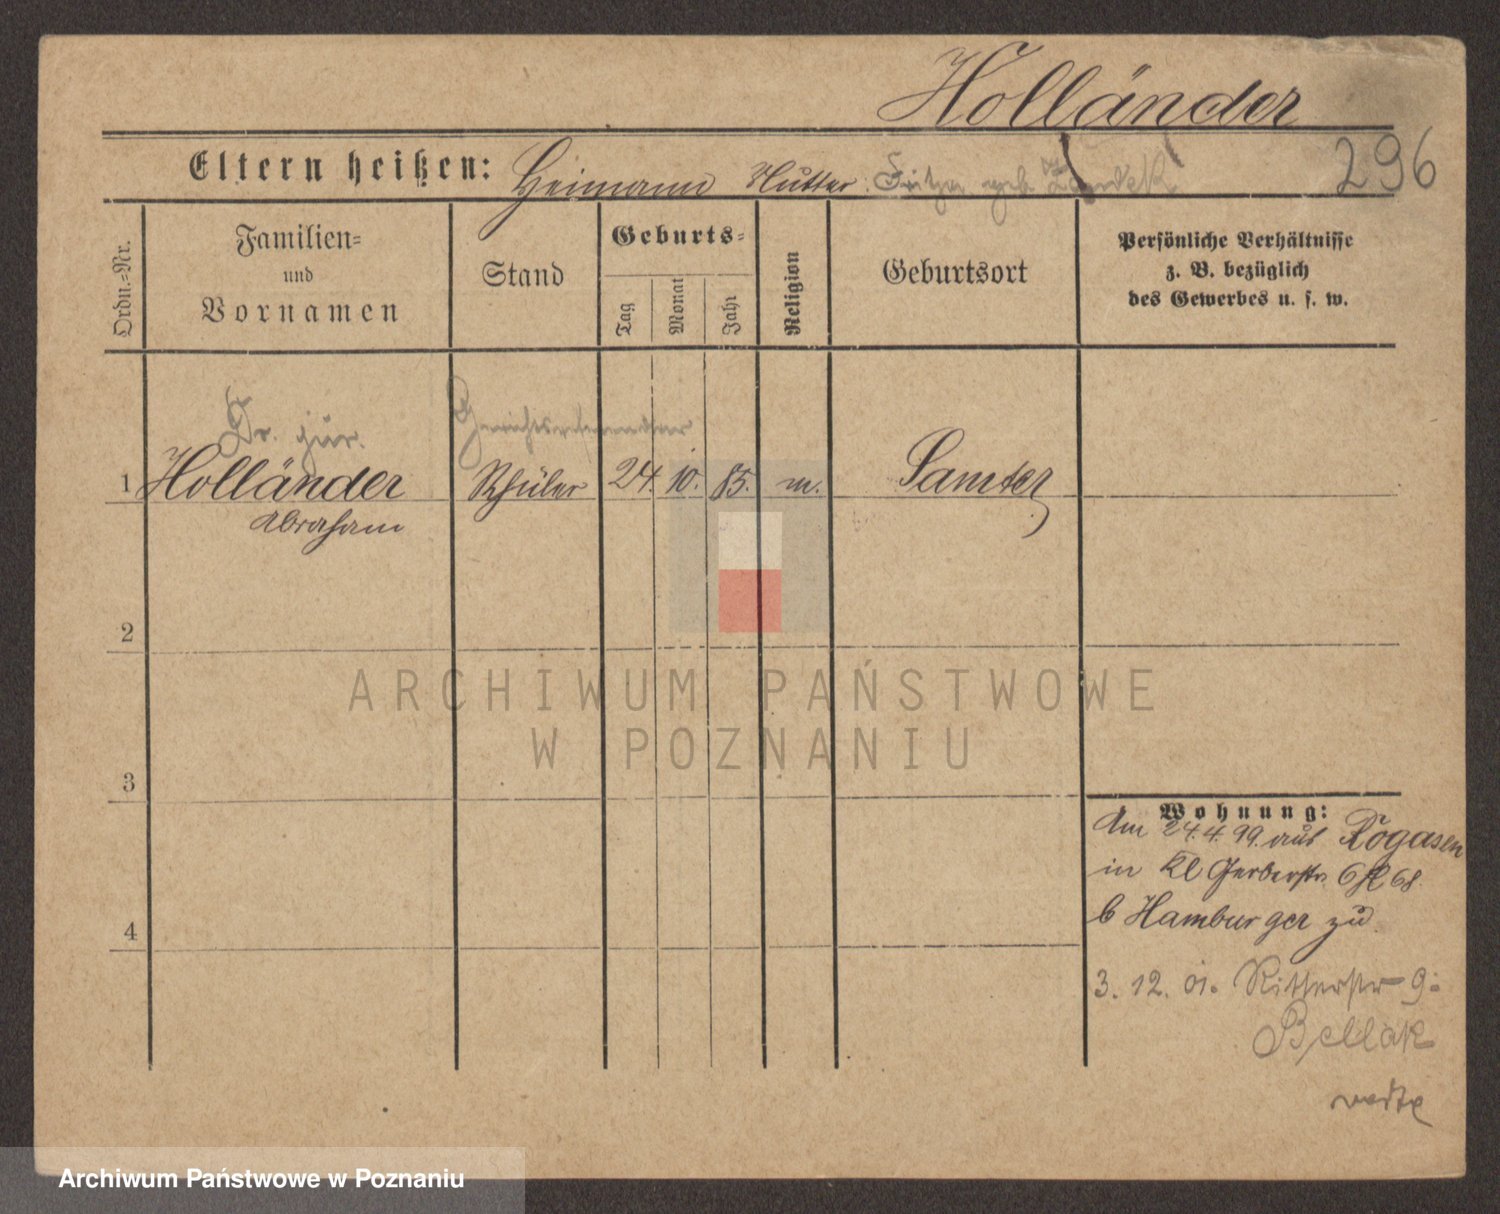 Holländer
Eltern heißen: Heimann Mutter geb.
296
Ordn.=Nr.
Familien=
und
Vornamen
Stand
Geburts=
Tag
Monat
Jahr
Religion
Geburtsort
Persönliche Verhältnisse
z. B. bezüglich
des Gewerbes u. s. w.
Dr. jur. Gerichtsreferendar
1 Holländer Schüler 24. 10. 85. m. Samter
Abraham
2
3
4
Wohnung:
Am 24.4.99. aus Rogasen
in Kl Gerberstr. 68.
b Hamburger zu
3. 12. 01. Ritterstr 9.
Bellak
ARCHIWUM PAŃSTWOWE
W POZNANIU
Archiwum Państwowe w Poznaniu